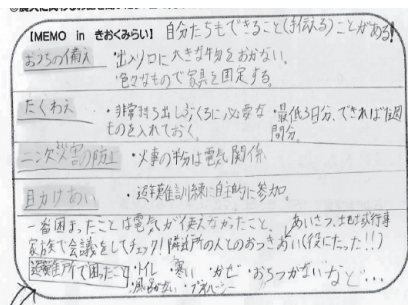 【MEMO in きおくみらい】 自分たちもできること(手伝える)ことがある!
おうちの備え ・出入り口に大きな物をおかない。
色々なもので家具を固定する。
たくわえ ・非常持ち出しぶくろに必要な ・最低3日分、できれば1週
ものを入れておく。 間分。
二次災害の防止 ・火事の半分は電気関係
目かけあい ・避難訓練に自主的に参加。
一番困ったことは電気が使えなかったこと。 あいさつ、地域行事
家族で会議をしてチェック! 隣近所の人とのおつきあい(役にたった!!)
避難所で困ったこと ・トイレ ・寒い ・カゼ ・おちつかない など...
・風呂がない ・プライバシー